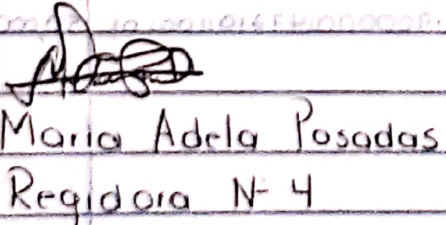 Maria Adela Posadas
Regidora N- 4